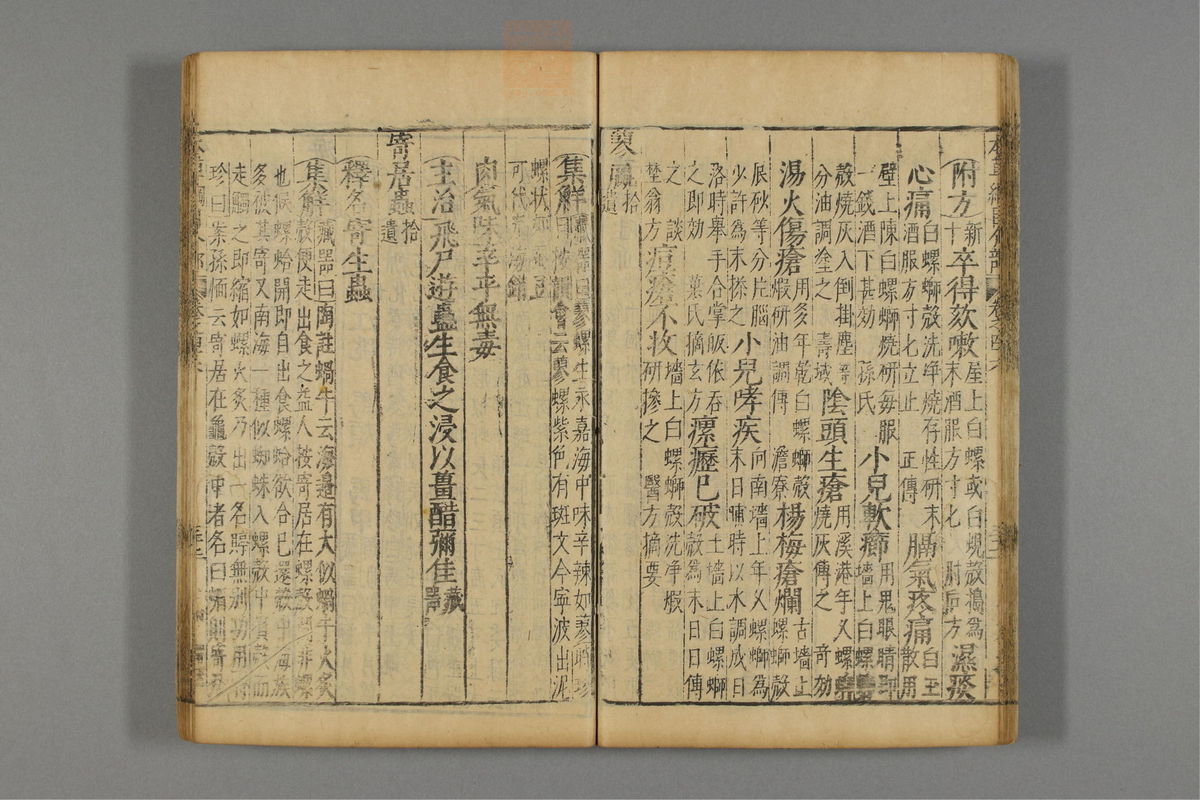 附方新十 卒得欬嗽屋上白螺或白蜆殼搗為末酒服方寸匕 肘后方 濕痰
心痛白螺螄殼洗净燒存性研末酒服方寸匕立止 正傳 膈氣疼痛白玉散用
壁上陳白螺螄燒研每服一錢酒下甚効 孫氏 小兒軟癤用鬼眼睛即墻上白螺螄
殼燒灰入倒掛塵等分油調塗之 壽域 陰頭生瘡用溪港年久螺螄燒灰傅之 奇効
湯火傷瘡用多年乾白螺螄殼煆研油調傅 澹寮 楊梅瘡爛古墻上螺螄殼
辰砂等分片腦少許為末搽之 小兒哮疾向南墻上年久螺螄為末日晡時以水調成日
落時舉手合掌皈依吞之即効 葉氏摘玄方 瘰癧已破土墻上白螺螄殼為末日日傅
之 談埜翁方 痘瘡不收墻上白螺螄殼洗净煆研摻之 醫方摘要
蓼螺拾遺
集解藏器曰蓼螺生永嘉海中味辛辣如蓼時珍曰按韻會云蓼螺紫色有斑文今寧波出泥
螺狀如蠶豆可代充海錯
肉氣味辛平無毒
主治飛尸遊蠱生食之浸以薑醋彌佳藏器
寄居蟲拾遺
釋名寄生蟲
集解藏器曰陶註蝸牛云海邊有大似蝸牛火炙殼便走出食之益人按寄居在螺殼間非螺
也候螺蛤開即自出食螺蛤欲合已還殼中海族多被其寄又南海一種似蜘蛛入螺殼中負殼而
走觸之即縮如螺火炙乃出一名 無別功用時珍曰案孫愐云寄居在龜殼中者名曰蝞則寄